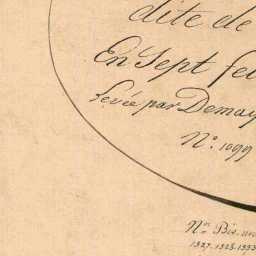 dite de
En Sept feu
Levée par Demay
N° 1099
Nta Bis. nu
1327. 1328. 1333